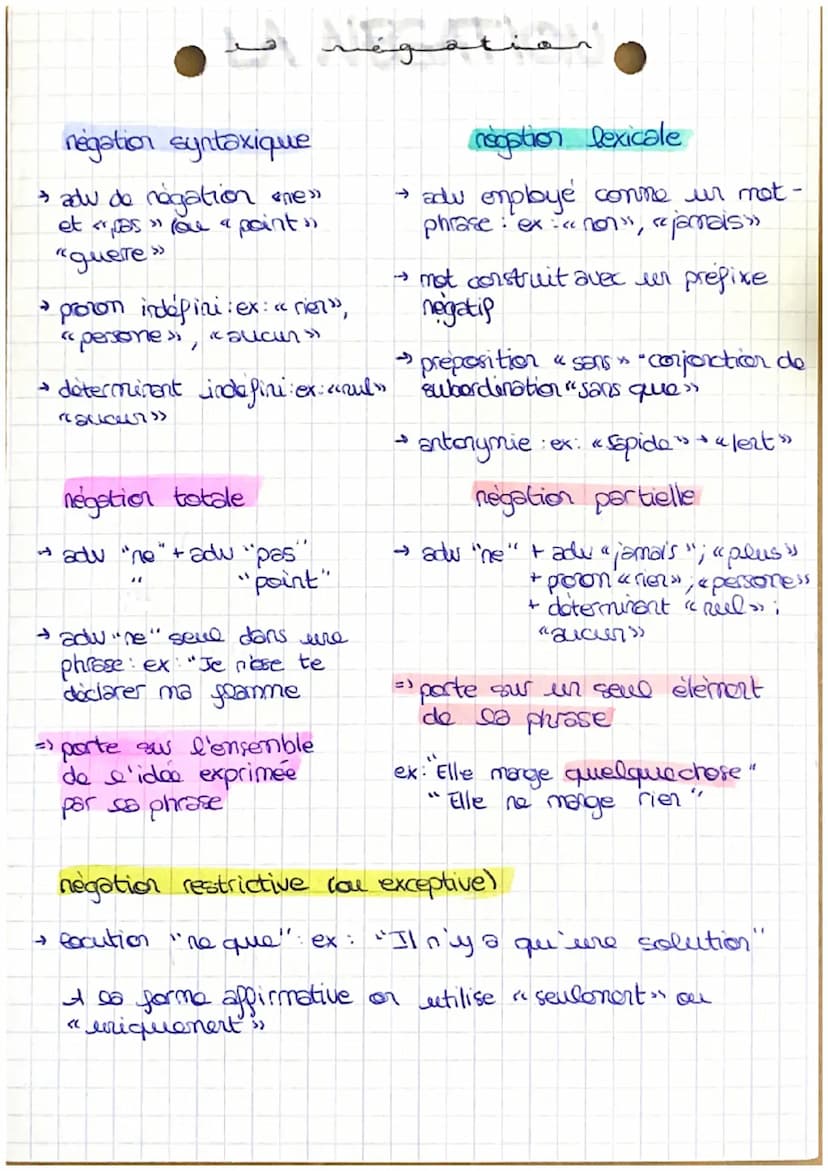 la négation
négation syntaxique
→ adv de négation «ne»
et «pas» (ou «point»
"guere"
→ pronom indéfini : ex : «rien»,
«persone», «aucun»
→ déterminant indéfini : ex : «nul»
«aucun»
négation lexicale
→ adv employé comme un mot-
phrase : ex : «non», «jamais»
→ mot construit avec un préfixe
négatif
→ préposition «sans» - conjonction de
subordination «sans que»
→ antonymie : ex : «rapide» → «lent»
négation totale
→ adv "ne" + adv "pas"
" "point"
→ adv "ne" seul dans une
phrase : ex : "Je n'ose te
déclarer ma flamme
=> porte sur l'ensemble
de l'idée exprimée
par la phrase
négation partielle
→ adv "ne" + adv «jamais»; «plus»
+ pronom «rien»; «persone»
+ déterminant «nul»;
"aucun»
=> porte sur un seul élément
de la phrase
ex : "Elle mange quelque chose"
"Elle ne mange rien"
négation restrictive (ou exceptive)
→ locution "ne que" : ex : "Il n'y a qu'une solution"
A la forme affirmative on utilise «seulement» ou
«uniquement»